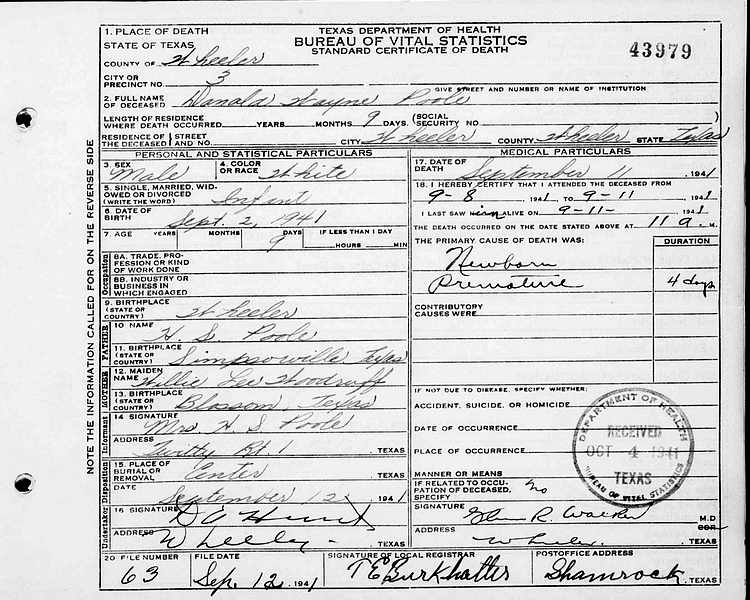 TEXAS DEPARTMENT OF HEALTH
BUREAU OF VITAL STATISTICS
STANDARD CERTIFICATE OF DEATH
43979
1. PLACE OF DEATH
STATE OF TEXAS
COUNTY OF Wheeler
CITY OR PRECINCT NO. 3
GIVE STREET AND NUMBER OR NAME OF INSTITUTION
2. FULL NAME OF DECEASED Donald Wayne Poole
LENGTH OF RESIDENCE WHERE DEATH OCCURRED YEARS MONTHS 9 DAYS. (SOCIAL SECURITY NO.
RESIDENCE OF THE DECEASED STREET AND NO. CITY Wheeler COUNTY Wheeler STATE Texas
NOTE THE INFORMATION CALLED FOR ON THE REVERSE SIDE
PERSONAL AND STATISTICAL PARTICULARS
3. SEX Male 4. COLOR OR RACE White
5. SINGLE, MARRIED, WIDOWED OR DIVORCED (WRITE THE WORD) Infant
6. DATE OF BIRTH Sept. 2, 1941
7. AGE YEARS MONTHS DAYS 9 IF LESS THAN 1 DAY HOURS MIN
Occupation
8A. TRADE, PROFESSION OR KIND OF WORK DONE
8B. INDUSTRY OR BUSINESS IN WHICH ENGAGED
9. BIRTHPLACE (STATE OR COUNTRY) Wheeler
FATHER
10 NAME H. S. Poole
11. BIRTHPLACE (STATE OR COUNTRY) Simpsonville Texas
MOTHER
12. MAIDEN NAME Willie Lee Woodruff
13. BIRTHPLACE (STATE OR COUNTRY) Blossom, Texas
Informant
14 SIGNATURE Mrs H S Poole
ADDRESS Twitty Rt. 1 TEXAS
Disposition
15. PLACE OF BURIAL OR REMOVAL Center
DATE September 12, 1941
Undertaker
16 SIGNATURE D O Hunt
ADDRESS Wheeler TEXAS
MEDICAL PARTICULARS
17. DATE OF DEATH September 11 1941
18. I HEREBY CERTIFY THAT I ATTENDED THE DECEASED FROM
9-8 1941 TO 9-11 1941
I LAST SAW him ALIVE ON 9-11- 1941
THE DEATH OCCURRED ON THE DATE STATED ABOVE AT 11 a. M.
THE PRIMARY CAUSE OF DEATH WAS: DURATION
Newborn
Premature 4 days
CONTRIBUTORY CAUSES WERE:
IF NOT DUE TO DISEASE, SPECIFY WHETHER:
ACCIDENT, SUICIDE, OR HOMICIDE
DATE OF OCCURRENCE
PLACE OF OCCURRENCE
MANNER OR MEANS
IF RELATED TO OCCUPATION OF DECEASED, SPECIFY No
SIGNATURE Glenn R. Walker M.D
ADDRESS Wheeler TEXAS
DEPARTMENT OF HEALTH
RECEIVED
OCT 4 1941
TEXAS
BUREAU OF VITAL STATISTICS
20 FILE NUMBER FILE DATE SIGNATURE OF LOCAL REGISTRAR POSTOFFICE ADDRESS
63 Sep. 12, 1941 T E Burkhalter Shamrock, TEXAS